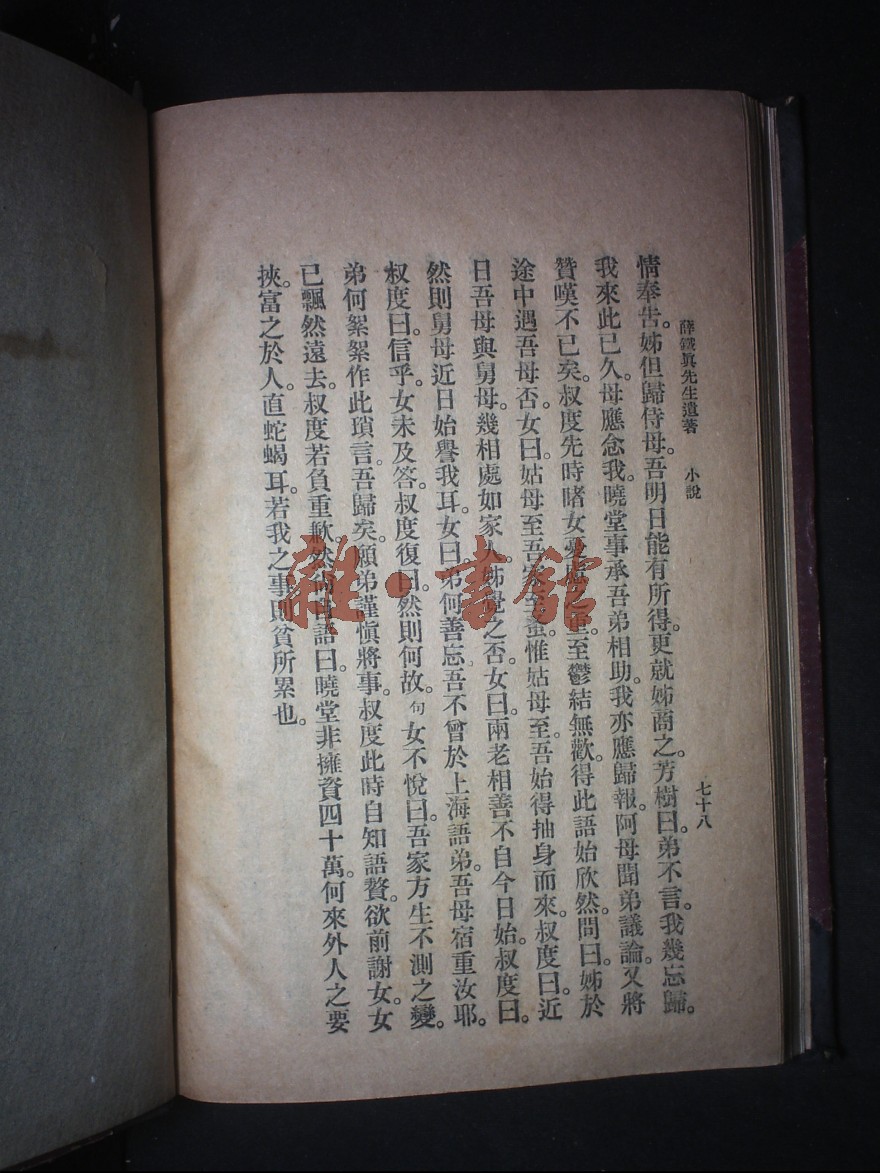 薛鐵眞先生遺著 小說 七十八
情奉告。姊但歸侍母。吾明日能有所得。更就姊商之。芳樹曰。弟不言。我幾忘歸。
我來此已久。母應念我。曉堂事承吾弟相助。我亦應歸報。阿母聞弟議論。又將
贊嘆不已矣。叔度先時睹女憂慮之重。至鬱結無歡。得此語始欣然。問曰。姊於
途中遇吾母否。女曰。姑母至吾家至蚤。惟姑母至。吾始得抽身而來。叔度曰。近
日吾母與舅母。幾相處如家人。姊覺之否。女曰。兩老相善。不自今日始。叔度曰。
然則舅母近日始譽我耳。女曰。弟何善忘。吾不曾於上海語弟。吾母宿重汝耶。
叔度曰。信乎。女未及答。叔度復曰。然則何故。句女不悅曰。吾家方生不測之變。
弟何絮絮作此瑣言。吾歸矣。願弟謹愼將事。叔度此時自知語贅。欲前謝女。女
已飄然遠去。叔度若負重歉。然語曰。曉堂非擁資四十萬。何來外人之要
挾。富之於人。直蛇蝎耳。若我之事則貧所累也。
雜·書館